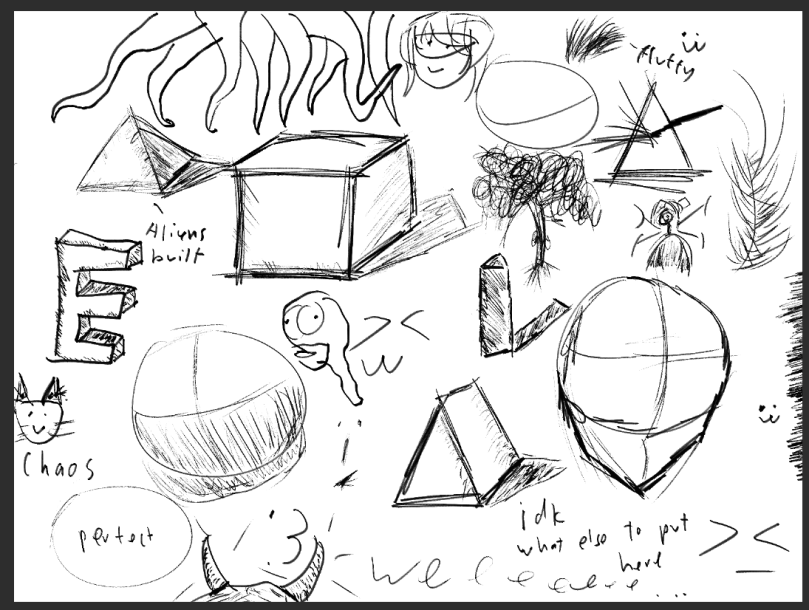 fluffy
Aliens
built
E
L
Chaos
perfect
:3
idk
what else to put
here